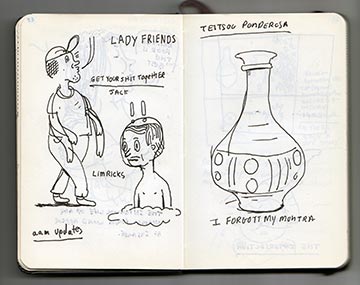 LADY FRIENDS
GET YOUR SHIT TOGETHER
JACK
LIMRICKS
aam updates
TEITSOU PONDEROSA
I FORGOTT MY MONTRA